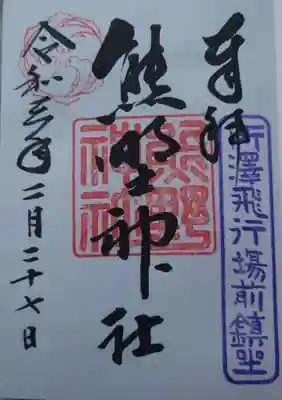 奉拝
所澤飛行場前鎮坐
熊野神社
熊野
神社
令和三年二月二十七日